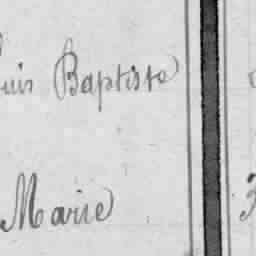 uis Baptiste
Marie